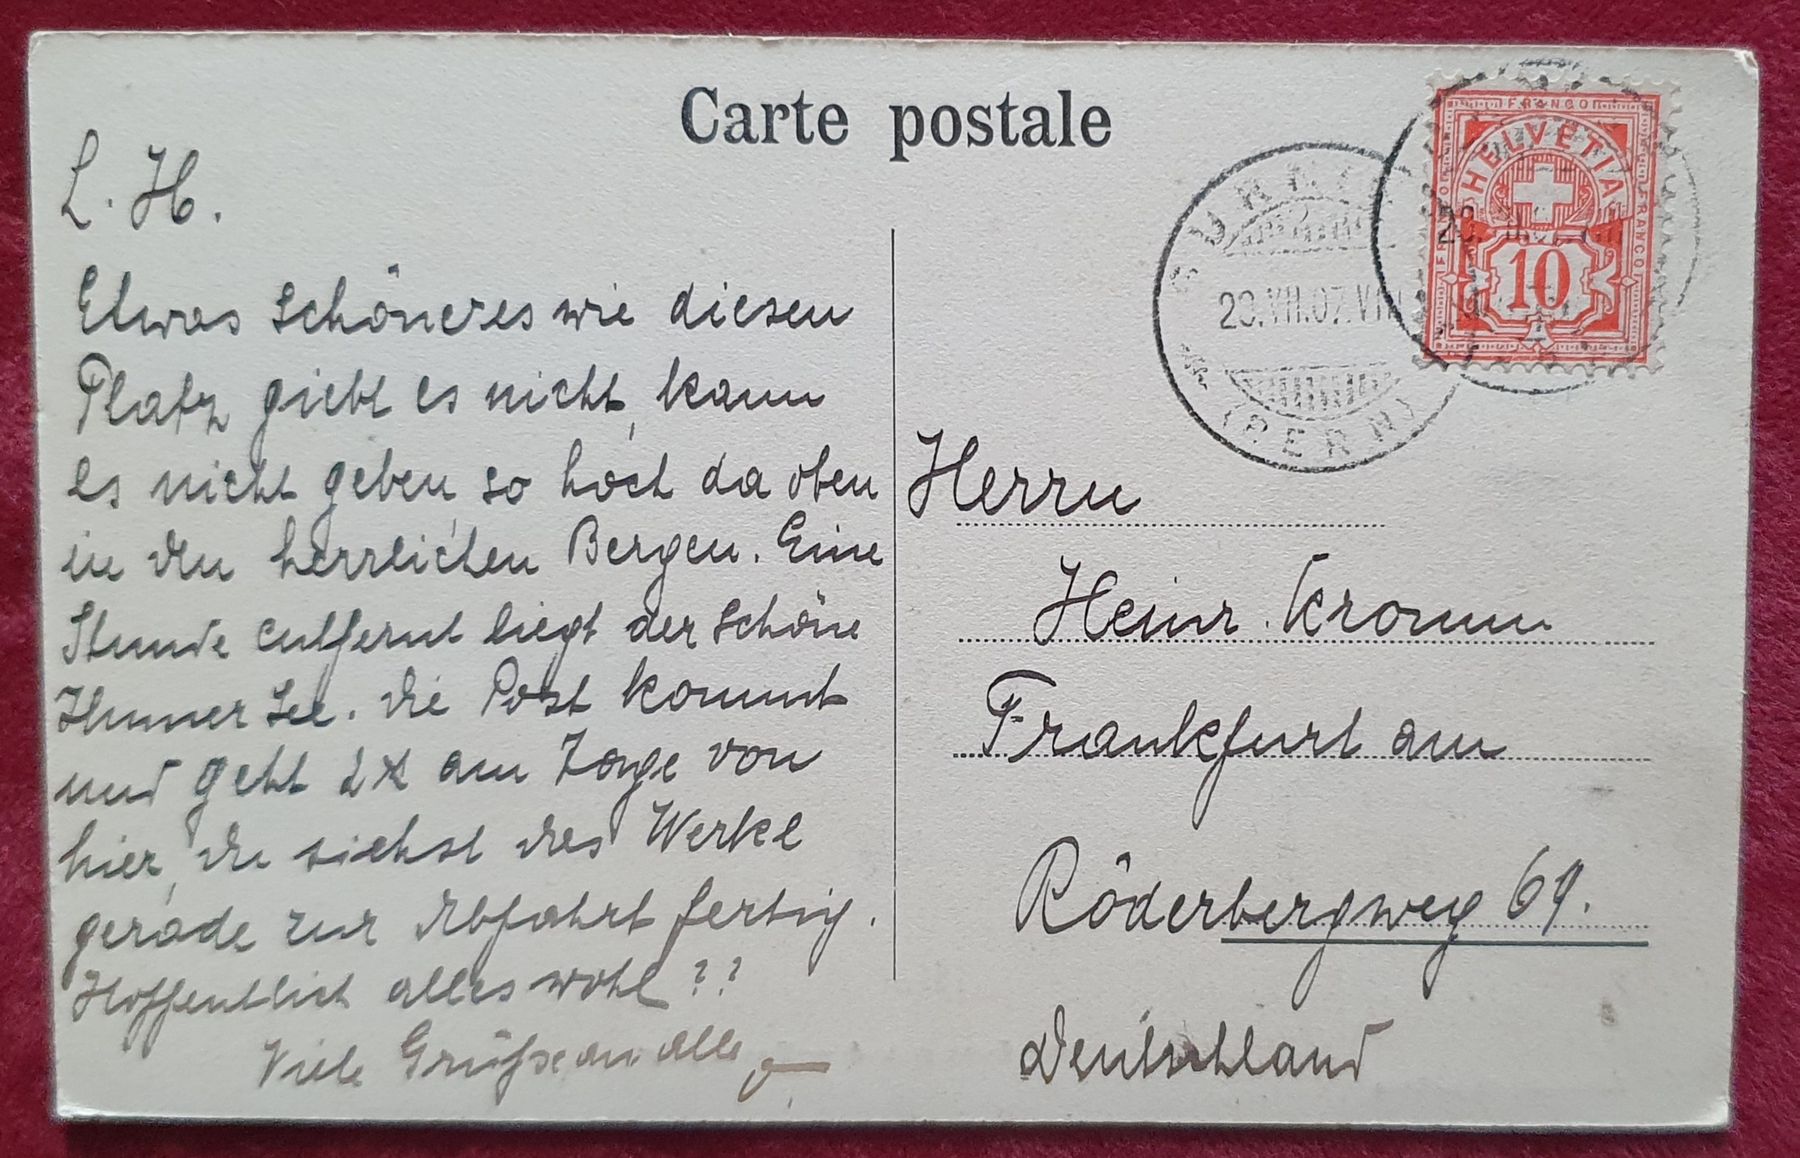 Carte postale
L. H.
Etwas schöneres wie diesen
Platz giebt es nicht, kann
es nicht geben, so hoch da oben
in den herrlichen Bergen. Eine
Stunde entfernt liegt der schöne
Thuner See. Die Post kommt
und geht 2x am Tage von
hier, Du siehst das Werkl
gerade zur Abfahrt fertig.
Hoffentlich alles wohl??
Viele Grüße an alle
FRANCO
HELVETIA
FRANCO
FRANCO
10
20.VII.07.VIII
(BERN)
Herrn
Heinr. Kromm
Frankfurt am
Röderbergweg 69.
Deutschland